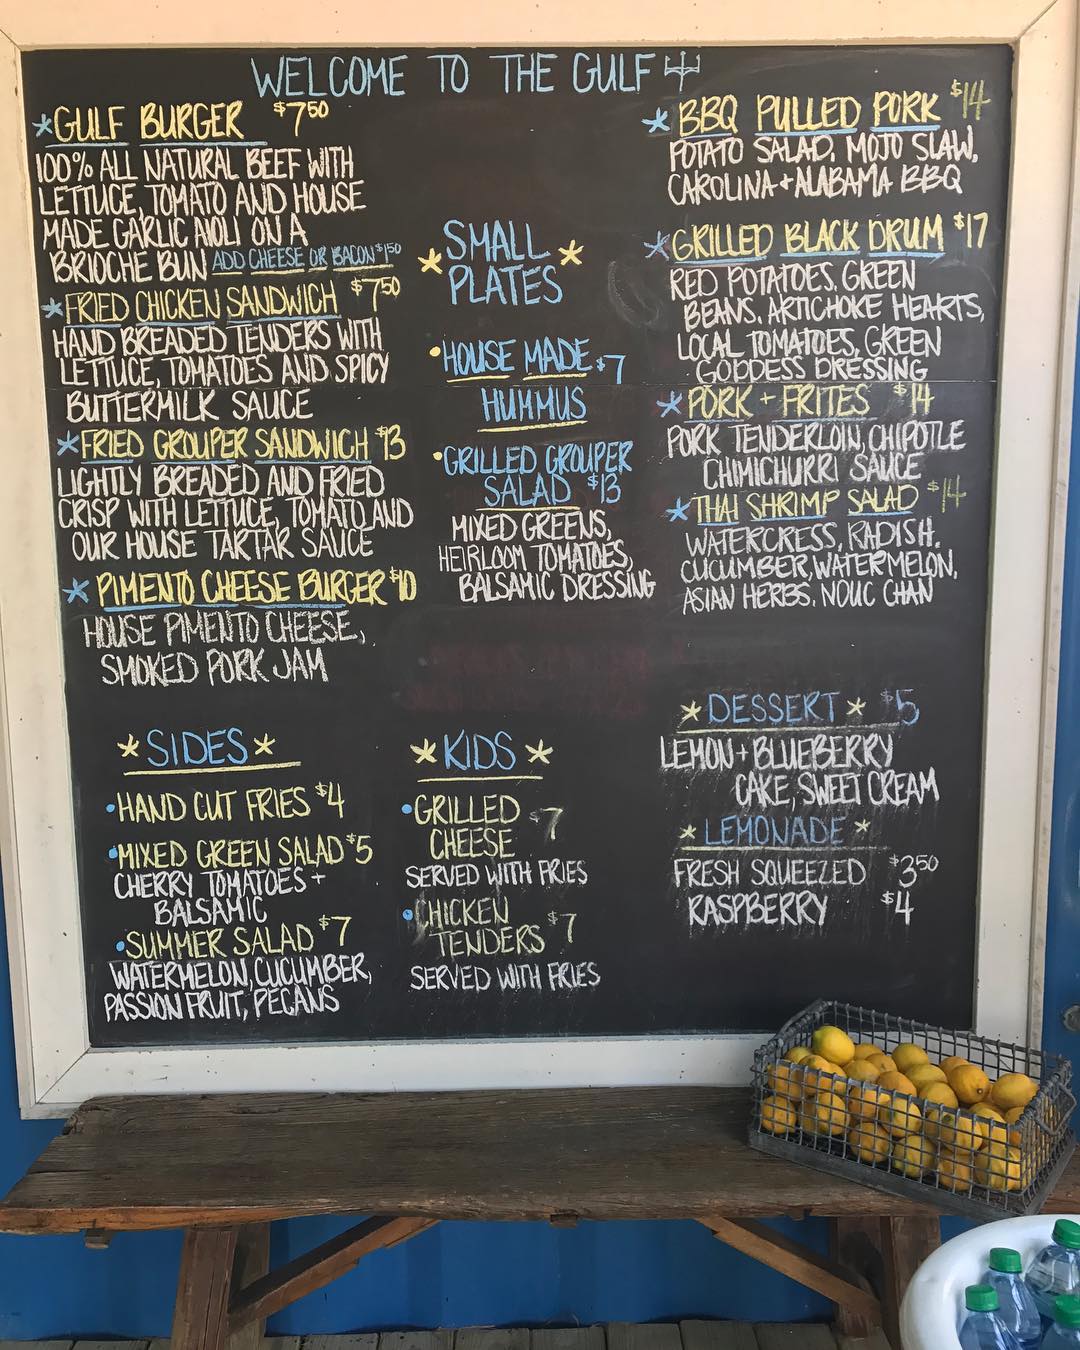 WELCOME TO THE GULF
*GULF BURGER $7⁵⁰
100% ALL NATURAL BEEF WITH
LETTUCE, TOMATO AND HOUSE
MADE GARLIC AIOLI ON A
BRIOCHE BUN ADD CHEESE OR BACON $1⁵⁰
*FRIED CHICKEN SANDWICH $7⁵⁰
HAND BREADED TENDERS WITH
LETTUCE, TOMATOES AND SPICY
BUTTERMILK SAUCE
*FRIED GROUPER SANDWICH $13
LIGHTLY BREADED AND FRIED
CRISP WITH LETTUCE, TOMATO AND
OUR HOUSE TARTAR SAUCE
* PIMENTO CHEESE BURGER $10
HOUSE PIMENTO CHEESE,
SMOKED PORK JAM
* SMALL *
PLATES
•HOUSE MADE $7
HUMMUS
•GRILLED GROUPER
SALAD $13
MIXED GREENS,
HEIRLOOM TOMATOES,
BALSAMIC DRESSING
* BBQ PULLED PORK $14
POTATO SALAD, MOJO SLAW,
CAROLINA + ALABAMA BBQ
*GRILLED BLACK DRUM $17
RED POTATOES, GREEN
BEANS, ARTICHOKE HEARTS,
LOCAL TOMATOES, GREEN
GODDESS DRESSING
* PORK + FRITES $14
PORK TENDERLOIN, CHIPOTLE
CHIMICHURRI SAUCE
* THAI SHRIMP SALAD $14
WATERCRESS, RADISH,
CUCUMBER, WATERMELON,
ASIAN HERBS, NOUC CHAN
* SIDES *
•HAND CUT FRIES $4
•MIXED GREEN SALAD $5
CHERRY TOMATOES +
BALSAMIC
•SUMMER SALAD $7
WATERMELON, CUCUMBER,
PASSION FRUIT, PECANS
* KIDS *
•GRILLED $7
CHEESE
SERVED WITH FRIES
•CHICKEN $7
TENDERS
SERVED WITH FRIES
* DESSERT * $5
LEMON + BLUEBERRY
CAKE, SWEET CREAM
* LEMONADE *
FRESH SQUEEZED $3⁵⁰
RASPBERRY $4